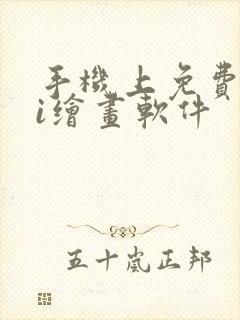 手機上免費
i繪畫軟件
五十嵐正邦